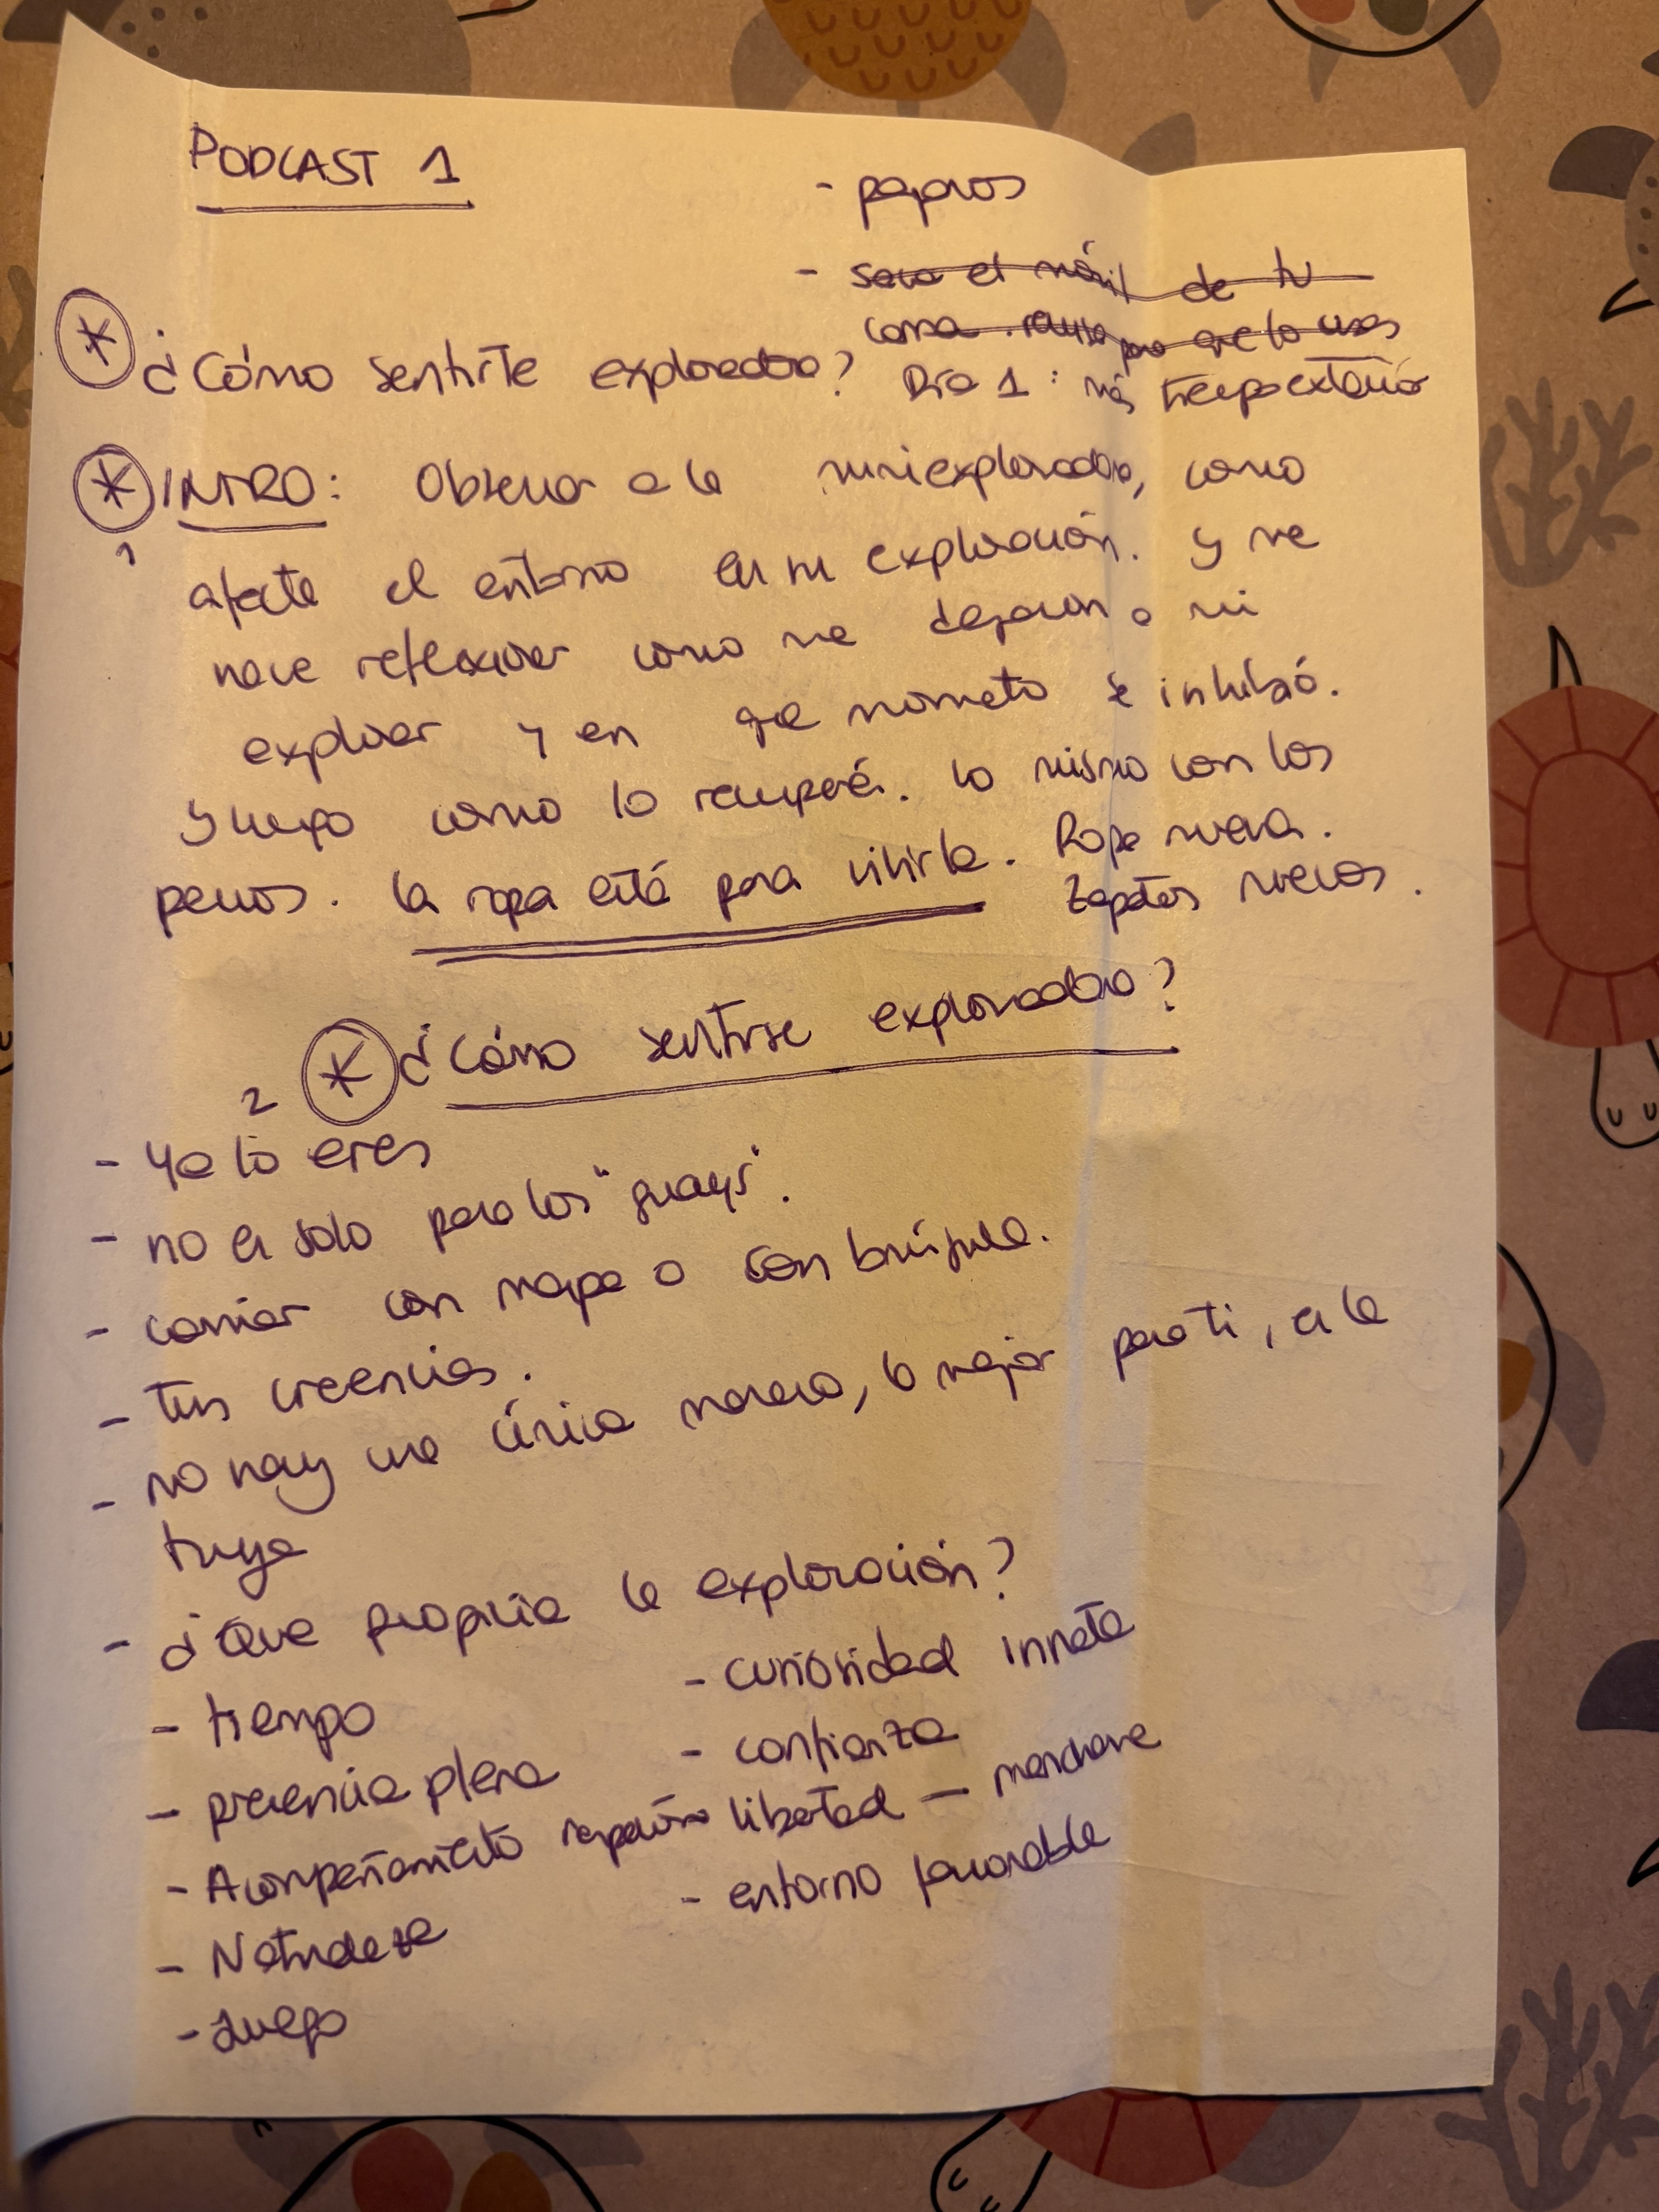 PODCAST 1
- pajaros
- saca el móvil de tu
cama. para que lo uses
¿Cómo sentirte exploradora?
Día 1: más tiempo exterior
* INTRO: Observar a la miniexploradora, como
1
afecta el entorno en su exploración. Y me
hace reflexionar como me dejaron a mi
explorar y en que momento se inhibió.
Y luego como lo recuperé. Lo mismo con los
perros. La ropa está para vivirla. Ropa nueva.
Zapatos nuevos.
2 * ¿Cómo sentirse exploradora?
- Ya lo eres
- no es solo para los "guays".
- caminar con mapa o con brújula.
- tus creencias.
- no hay una única manera, la mejor para ti, es la
tuya
- ¿Que propicia la exploración?
- tiempo
- presencia plena
- Acompañamiento respetuoso
- Naturaleza
- Juego
- curiosidad innata
- confianza
libertad — mancharse
- entorno favorable